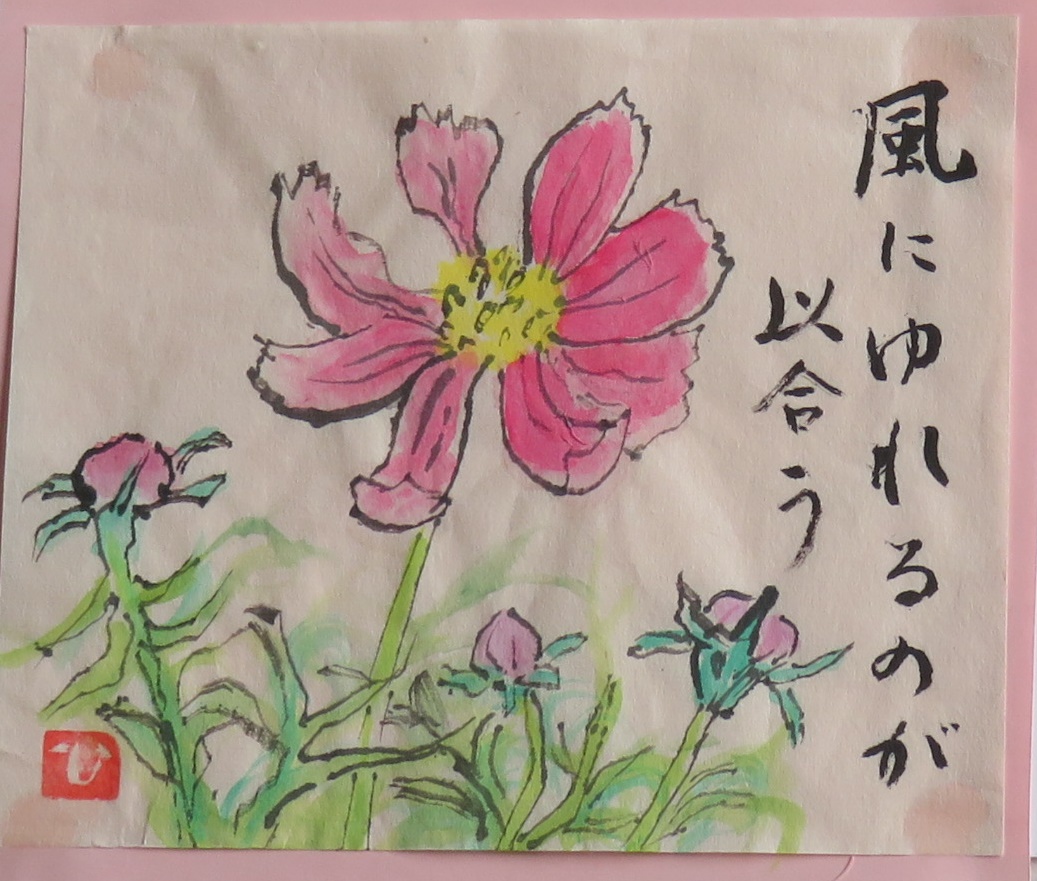 風にゆれるのが
以合う
ひ